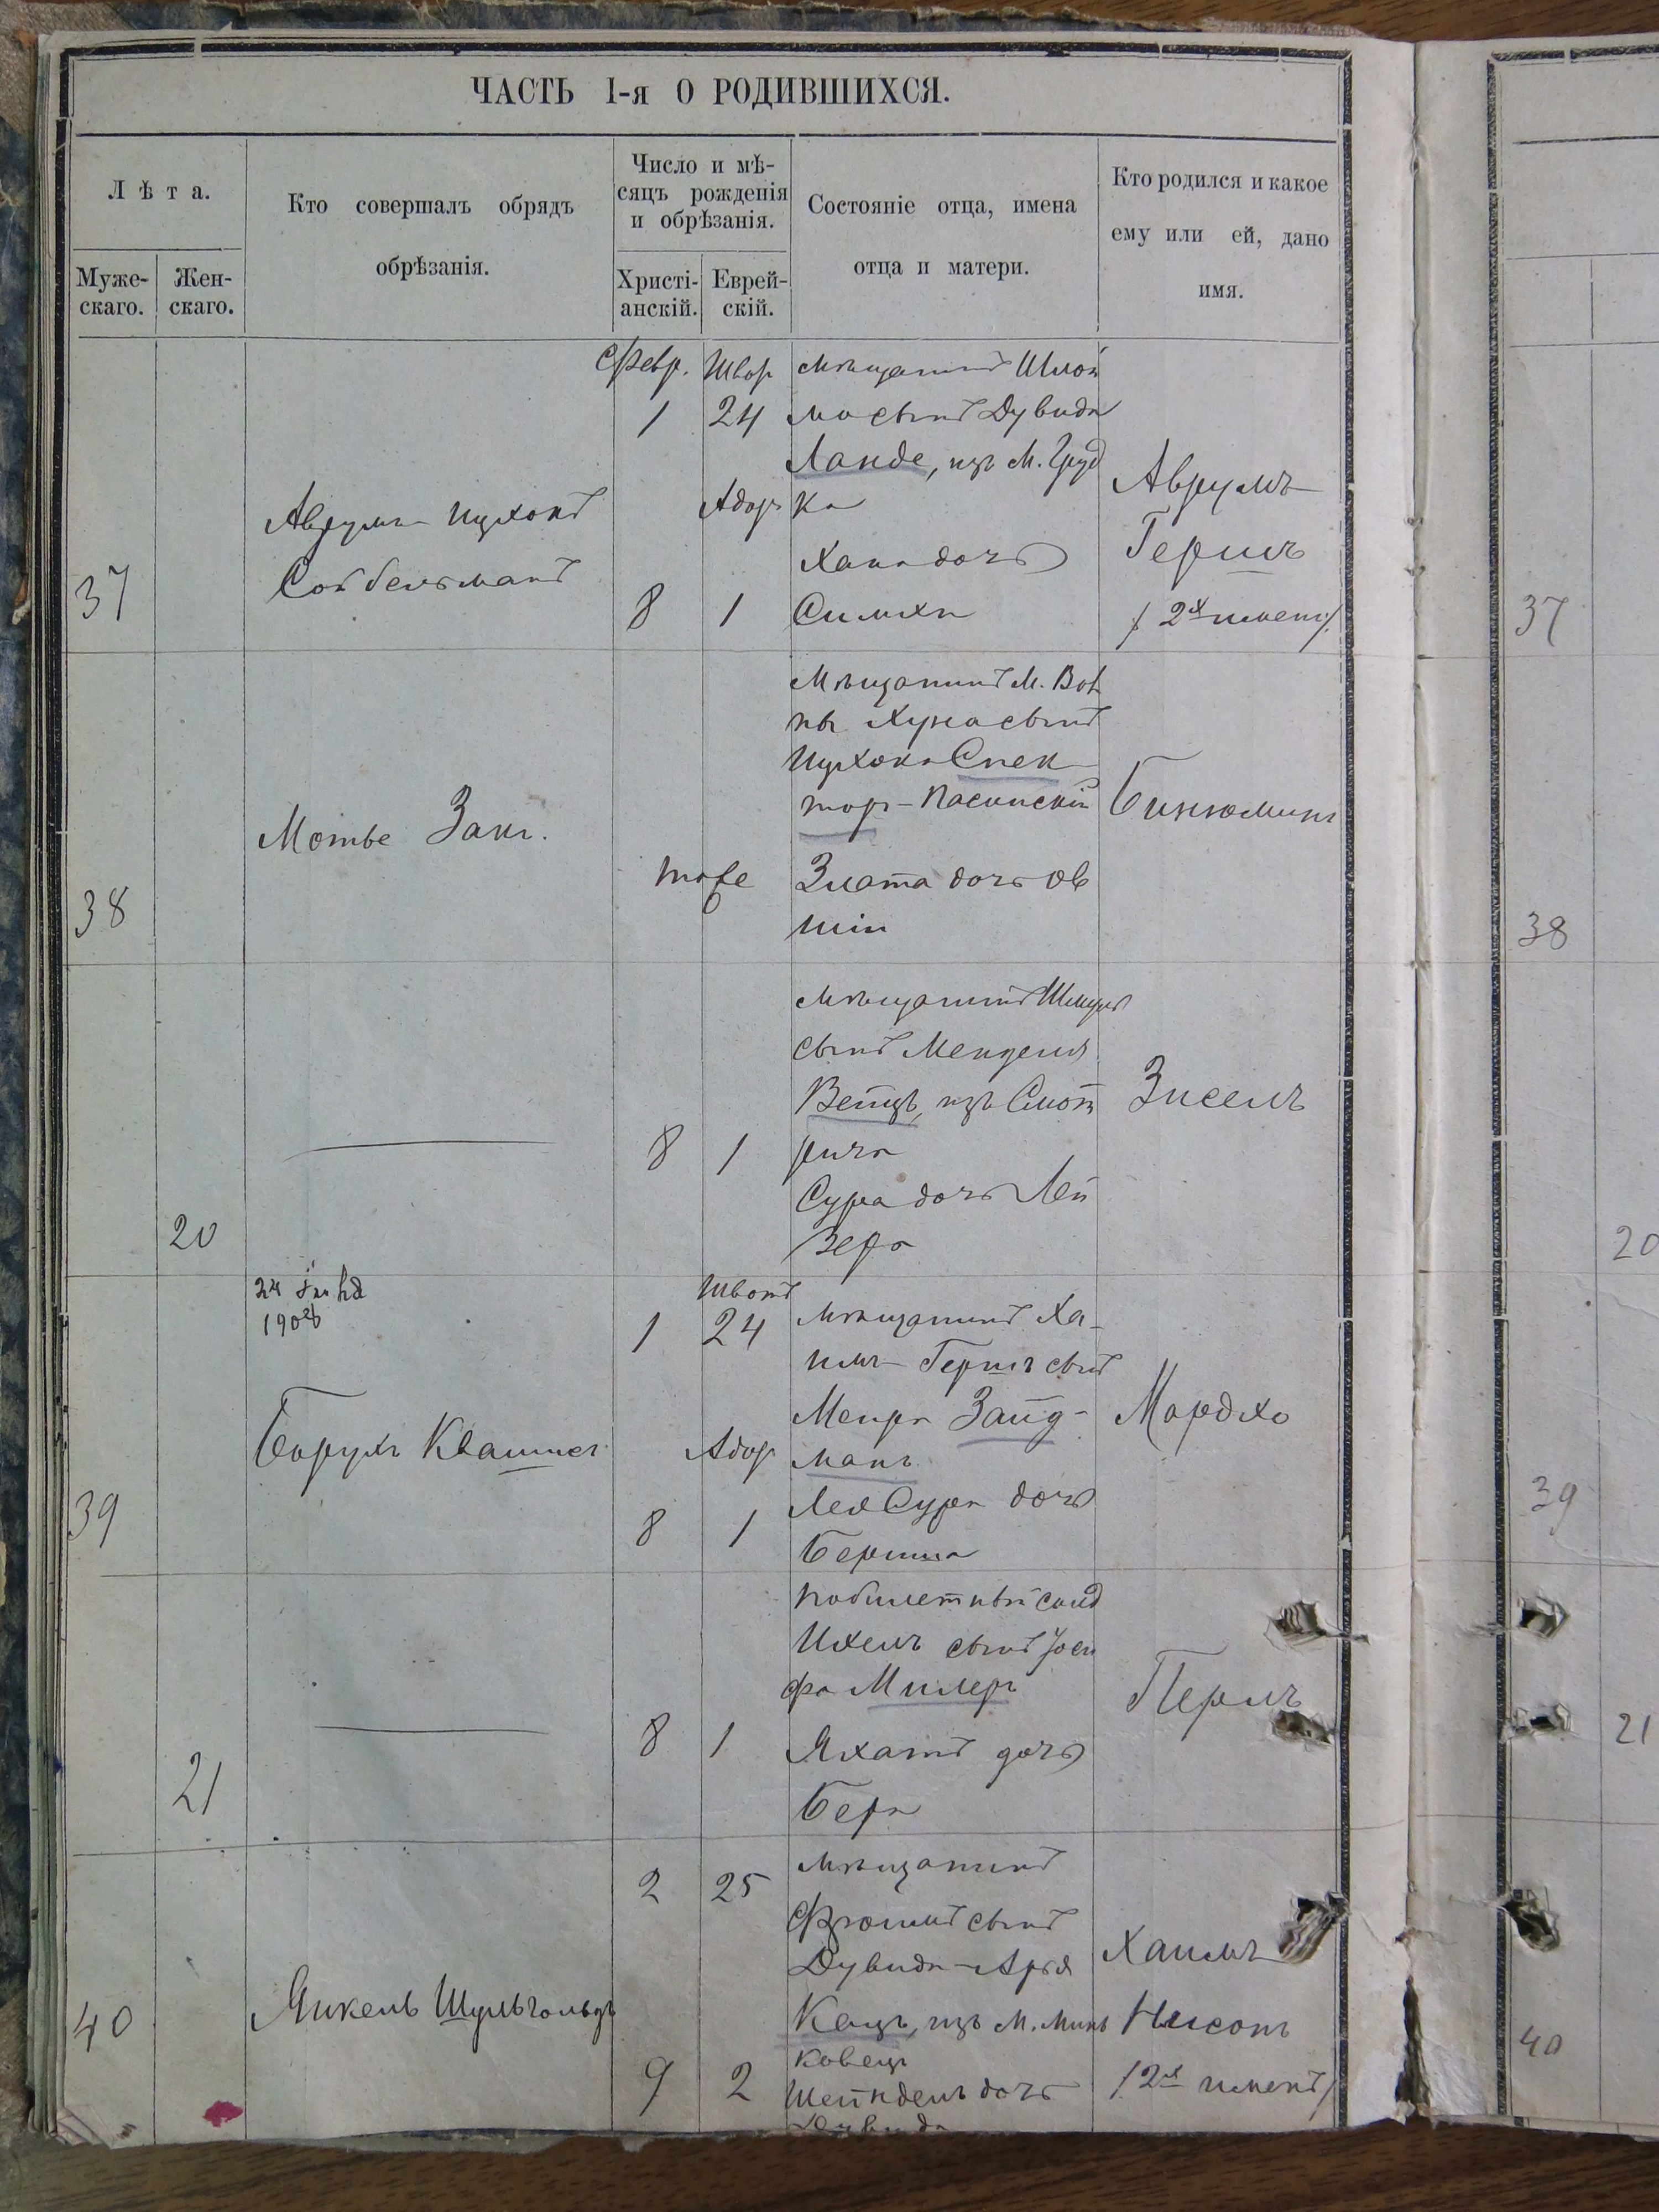 ЧАСТЬ I-я О РОДИВШИХСЯ.
Лѣта.
Муже-
скаго.
Жен-
скаго.
Кто совершалъ обрядъ
обрѣзанія.
Число и мѣ-
сяцъ рожденія
и обрѣзанія.
Христі-
анскій.
Еврей-
скій.
Состояніе отца, имена
отца и матери.
Кто родился и какое
ему или ей, дано
имя.
37
Аврумъ-Ицхокъ
Февр.
1
8
24
Адаръ
1
мѣщанинъ Шлой
ма сынъ Дувида
Ланде, изъ М. Груд
ка
Хана дочь
Симхи
Аврумъ-
Гершъ
/2хъ именъ/
37
38
Мотье Закъ.
тоже
Мѣщанинъ М.
Хуна сынъ
Ицхока Спек
торъ-
Злата дочь Ов
шія
Бинюминъ
38
20
8
1
мѣщанинъ Шмуль
сынъ Менделя
изъ Смот
рича
Сура дочь Лей
зера
Зисель
20
39
24
Борухъ
1
8
Шватъ
24
Адаръ
1
мѣщанинъ Ха-
имъ-Гершъ сынъ
Меира Зайд-
манъ
Лея Сура дочь
Бериша
Мордхо
39
21
8
1
побилетный солд
Ихель сынъ Іоси
фа Милеръ
дочь
Бера
Перль
21
40
Янкель Шульгольдъ
2
9
25
2
мѣщанинъ
Фроимъ сынъ
Дувида-Арья
Кацъ, изъ М. Минь
ковецъ
Шейндель дочь
Дувида
Хаимъ
Нисонъ
/2хъ именъ/
40